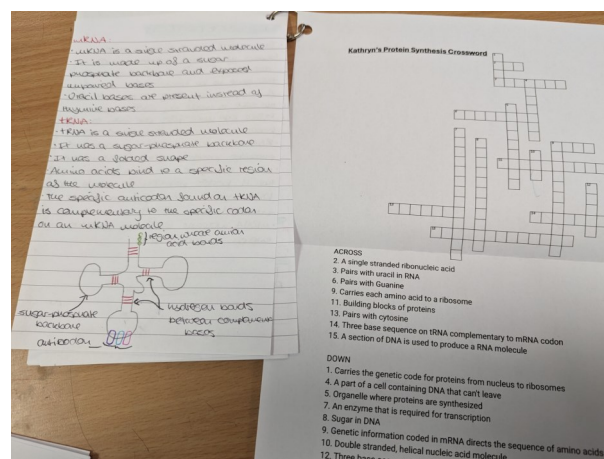 mRNA
· mRNA is a single stranded molecule
· It is made up of a sugar
phosphate backbone and exposed
unpaired bases
· Uracil bases are present instead of
thymine bases
tRNA:
· tRNA is a single stranded molecule
· It has a sugar-phosphate backbone
· It has a folded shape
· Amino acids bind to a specific region
of the molecule
The specific anticodon found on tRNA
is complementary to the specific codon
on an mRNA molecule
region where amino
acid bonds
sugar-phosphate
backbone
hydrogen bonds
between
bases
anticodon
Kathryn's Protein Synthesis Crossword
ACROSS
2. A single stranded ribonucleic acid
3. Pairs with uracil in RNA
6. Pairs with Guanine
9. Carries each amino acid to a ribosome
11. Building blocks of proteins
13. Pairs with cytosine
14. Three base sequence on tRNA complementary to mRNA codon
15. A section of DNA is used to produce a RNA molecule
DOWN
1. Carries the genetic code for proteins from nucleus to ribosomes
4. A part of a cell containing DNA that can't leave
5. Organelle where proteins are synthesized
7. An enzyme that is required for transcription
8. Sugar in DNA
9. Genetic information coded in mRNA directs the sequence of amino acids
10. Double stranded, helical nucleic acid molecule
12. Three base